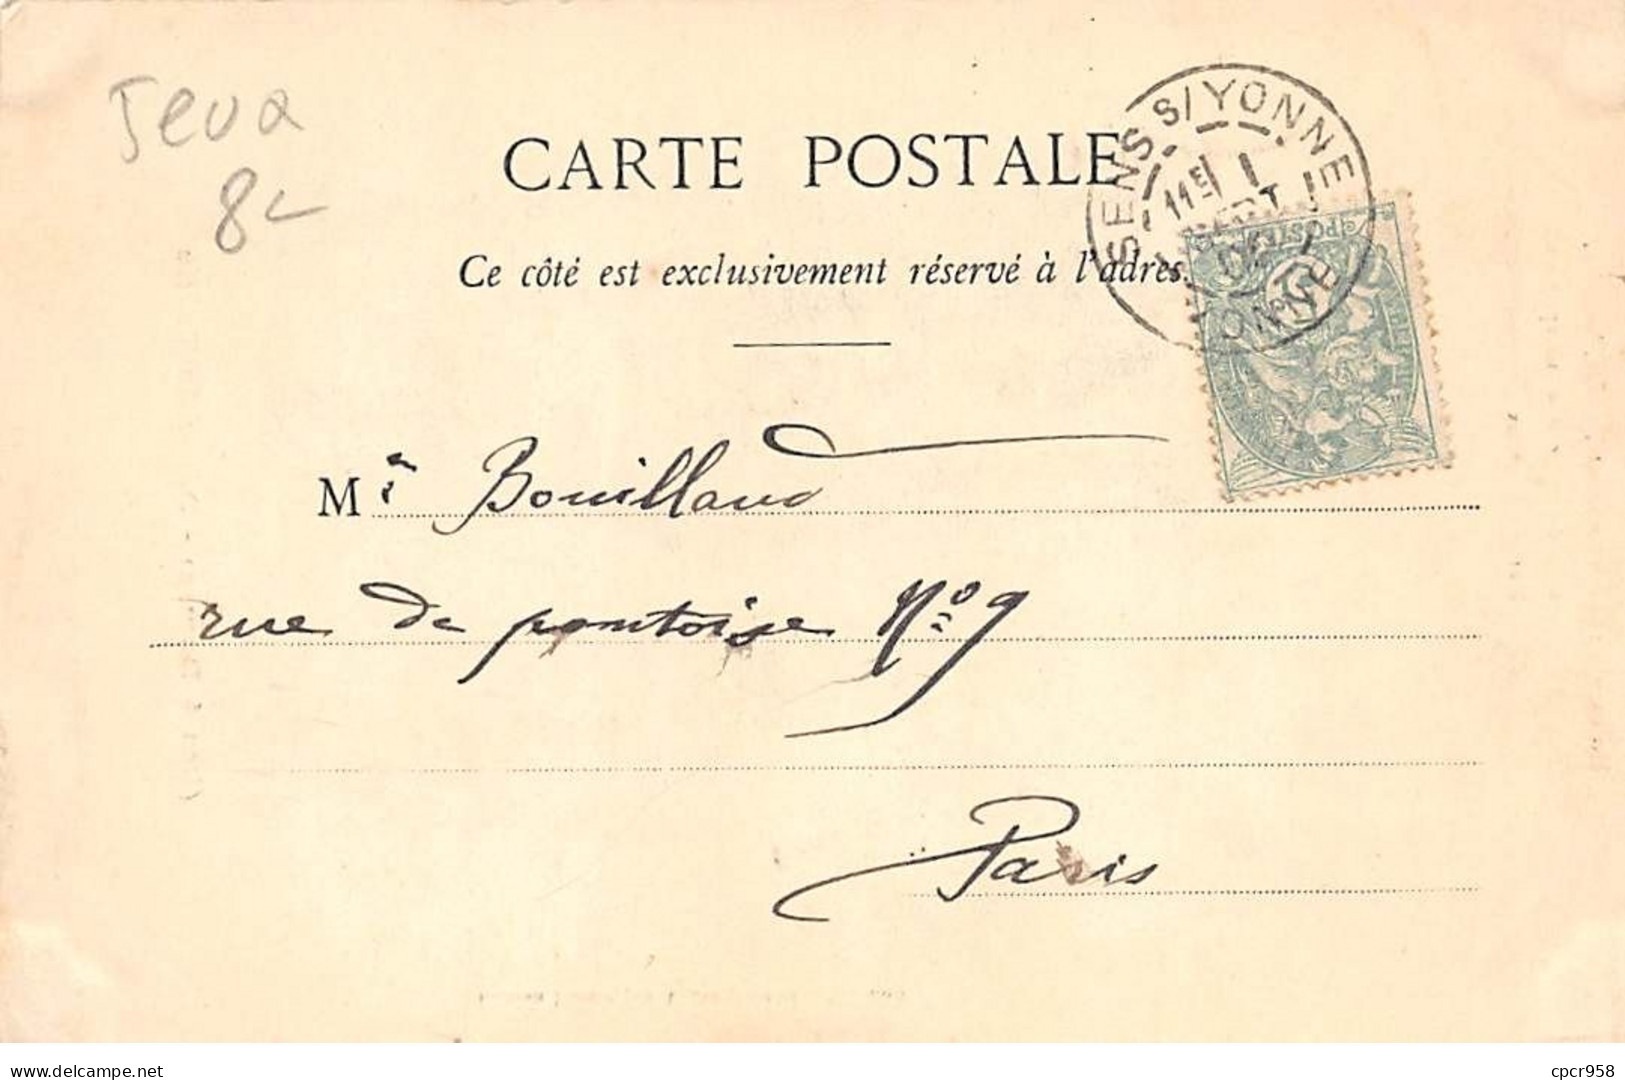 8
CARTE POSTALE
SENS S/YONNE
11E
POSTES
5
YONNE
Ce côté est exclusivement réservé à l'adres
Mr Bouillaud
rue de pontoise No 9
Paris
www.delcampe.net
cpcr958